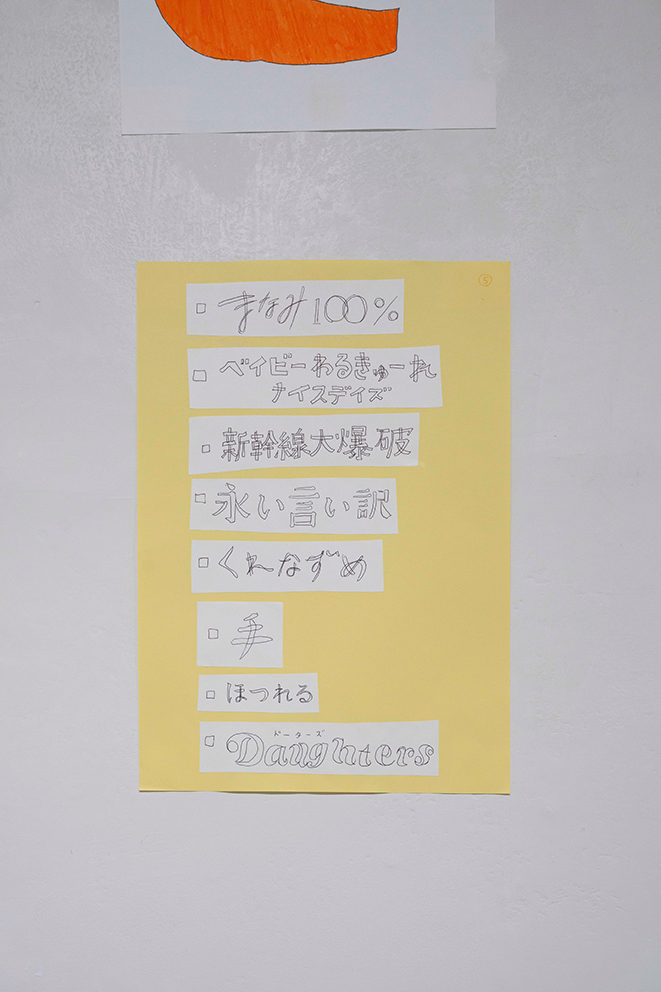 ⑤
□ まなみ100%
□ ベイビーわるきゅーれ
ナイスデイズ
□ 新幹線大爆破
□ 永い言い訳
□ くれなずめ
□ 手
□ ほつれる
ドーターズ
□ Daughters